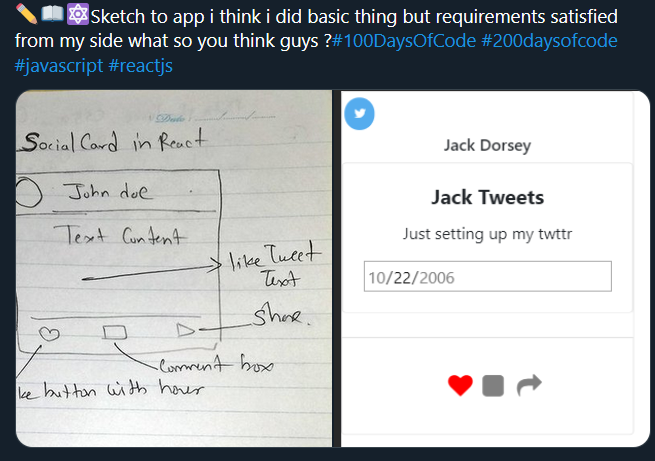 ✏️📖⚛️Sketch to app i think i did basic thing but requirements satisfied
from my side what so you think guys ?#100DaysOfCode #200daysofcode
#javascript #reactjs
Date
Social Card in React
John doe
Text Content
like Tweet
Text
Share.
Comment box
ke button with hover
Jack Dorsey
Jack Tweets
Just setting up my twttr
10/22/2006